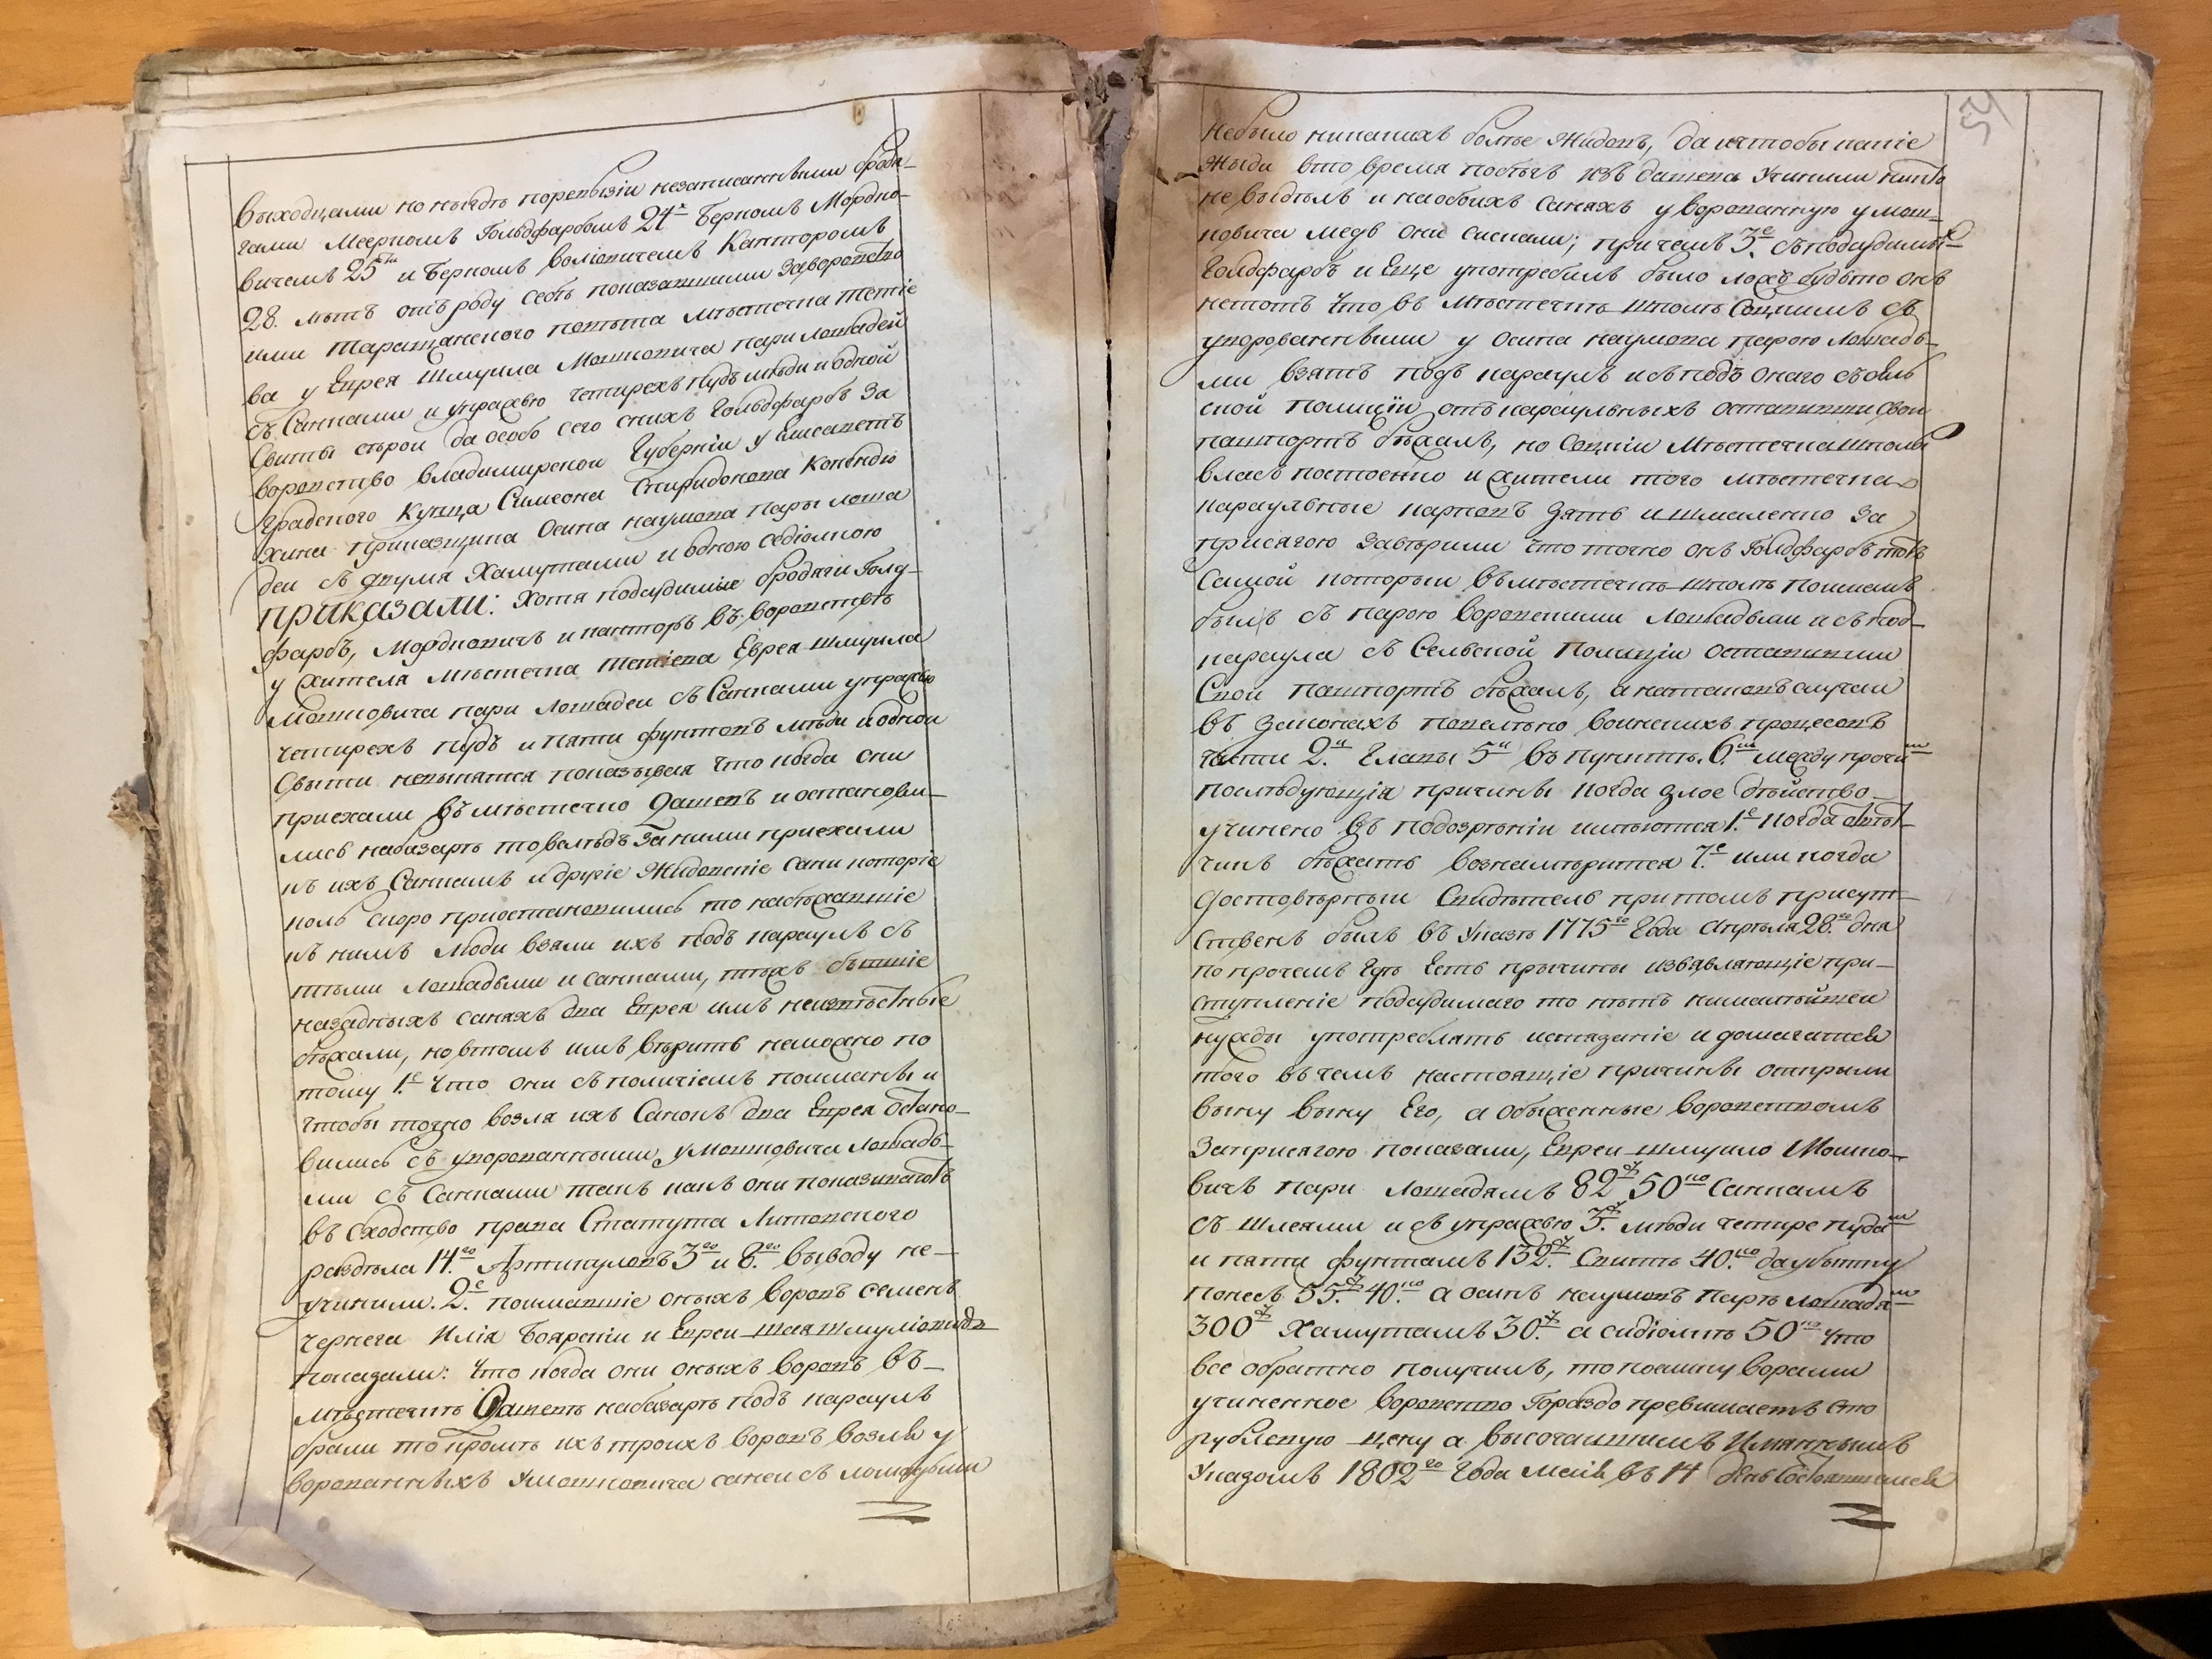 выходцами но нигдѣ поревызіи незаписанными бродя-
гами Меерком Гольдфарбомъ 24х Беркомъ Мордко-
вичемъ 25ти и Беркомъ Волiовичемъ Канторомъ
28. лѣтъ отъ роду себѣ показавшими заворовство
ими таращанского повѣта мѣстечка тетiе
ва у Еврея Шмуила Мошковича пари лошадей
съ Санками и упражю четирехъ пудъ мѣди и одной
Свиты сѣрой да особо сего снихъ Гольдфарбъ за
воровство владимирской Губерніи у Елисавет
градского Купца Симеона Спиридонова
прикащика Осипа наумова пары лоша
дей съ двума Хамутами и одною седіолкою
приказали: Хотя подсудимые бродяги Голд-
фарбъ, Мордковичъ и канторъ въ воровствѣ
у жителя мѣстечка тетіева Еврея Шмуила
Мошковича пари лошадей съ Санками упражю
четирехъ пудъ и пяти фунтовъ мѣди и одной
Свыти невынятся показывая что когда они
приехали въ мѣстечко Дашевъ и останови-
лись набазарѣ то вслѣдъ за ними приехали
къ ихъ Санкамъ и другіе Жидовскіе сани которіе
коль скоро приостановились то набѣжавшіе
къ нимъ люди взали ихъ подъ караулъ съ
тѣми лошадьми и санками, тѣхъ бывшіе
назадныхъ саняхъ два Еврея имъ неизвѣстные
бѣжали, но втомъ имъ вѣрить неможно по
тому 1е что они съ поличіемъ пойманы и
чтобы точно возля ихъ Санокъ два Еврея остано-
вились съ упорованными у Мошковича лошадь-
ми съ Санками такъ какъ они показиваютъ
въ сходство права Статута Литовского
раздѣла 14го Артикуловъ 3го и 8го выводу не-
учинили. 2е поимавшіе оныхъ воровъ семенъ
чернега Иліа Боярскіи и Евреи
показали: что когда они оныхъ воровъ въ-
мѣстечкѣ Дашевѣ набазарѣ подъ караулъ
брали то кромѣ ихъ троихъ воровъ возлѣ у
ворованныхъ Умошковича саней съ лошадьми
54
небыло никакихъ болѣе Жидовъ, да ичтобы какіе
Жыди вто время побѣгъ изъ дашева Учинили никто
не выдѣлъ и наобыхъ санахъ уворованную у мош-
ковича медъ они сискали; при чемъ 3е съ подсудимых
Голдфарбъ и Еще употребилъ было ложъ будьто онъ
нетотъ что въ мѣстечкѣ шполѣ Соцкимъ съ
уворованными у Осипа наумова парою лошадь-
ми взятъ подъ караулъ исъ подъ оного съ сель
ской полиціи отъ караульныхъ оставивши свой
пашпортъ бѣжалъ, но Соцкіи Мѣстечка шполы
власъ костенко и жители того мѣстечка
караульные карповъ зять и шмаленко за
присягою завѣрили что точно онъ Голдфарбъ тотъ
самой которыи въ мѣстечкѣ шполѣ поиманъ
былъ съ парою воровскими лошадьми и съ под-
караула съ Сельской полиціи оставивши
свой пашпортъ бѣжалъ, а натаковъ случаи
въ законахъ повелѣно воинскихъ процесовъ
части 2й Главы 5й въ пунктѣ 6м между прочим
послѣдующіа причины когда злое дѣйство-
учинено въ подозрѣніи имѣются 1е когда отвѣт-
чикъ бѣжать вознамѣрится 7е или когда
достовѣрный Свидѣтель притомъ присут-
ственъ былъ въ Указѣ 1775го года апрѣля 28го дня
по прочемъ гдѣ есть прычины избявляющіе при-
ступленіе подсудимаго то нѣтъ нималѣйшей
нужды употреблять истязаніе и домагатся
того въ чемъ настоящіе причины открыли
выну выну Его, а обыженные воровствомъ
Заприсягою показали, Евреи шмуило Мошко-
вичъ пари лошадямъ 82ру 50ко Санкамъ
съ шлеями и съ упражю 3ру мѣди четире пудам
и пяти фунтамъ 132ру Свитѣ 40ко да убытку
понесъ 55ру 40ко а осипъ наумовъ парѣ лошадям
300ру Хамутамъ 30ру а сидіолкѣ 50ко что
все обратно получилъ, то поелику ворами
учиненное воровство Гораздо превишаетъ сто
рублевую цену а высочаишимъ Имяннымъ
Указомъ 1802го Года маія въ 14 день состоявшемся